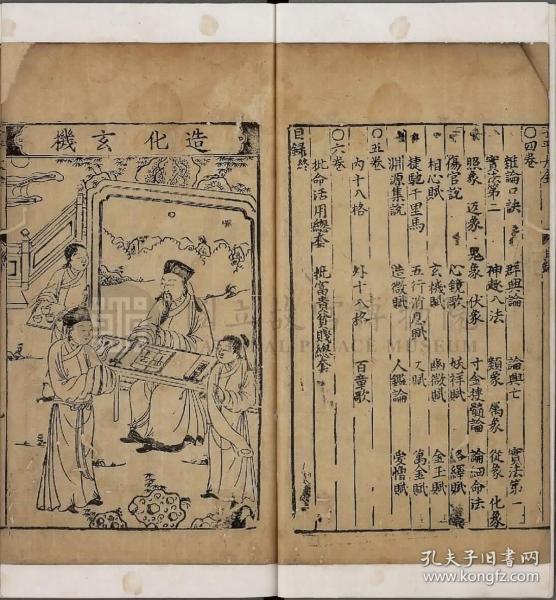 〇四卷
雜論口訣 群興論 論興亡 寶法第一
寶法第二 神趣八法 類象 屬象 從象 化象
照象 返象 鬼象 伏象 寸金搜髓論 論命法
傷官說 心鏡歌 妖祥賦 絡繹賦
相心賦 玄機賦 幽微賦 金玉賦
捷馳千里馬 五行消息賦 又賦 萬金賦
淵源集說 造微賦 人鑑論 愛憎賦
〇五卷
內十八格 外十八格 百章歌
〇六卷
批命活用總套 批富貴貧賤總套
目錄終
造化玄機
國立故宮博物院
NATIONAL PALACE MUSEUM
孔夫子旧书网
www.kongfz.com